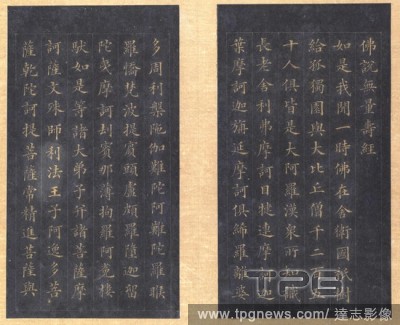 佛說無量壽經
如是我聞一時佛在舍衛國祇樹
給孤獨園與大比丘僧千二百五
十人俱皆是大阿羅漢衆所知識
長老舍利弗摩訶目揵連摩訶迦
葉摩訶迦旃延摩訶俱絺羅離婆
多周利槃陀伽難陀阿難陀羅睺
羅憍梵波提賓頭盧頗羅墮迦留
陀夷摩訶劫賓那薄拘羅阿㝹樓
馱如是等諸大弟子幷諸菩薩摩
訶薩文殊師利法王子阿逸多菩
薩乾陀訶提菩薩常精進菩薩與
TPG
www.tpgnews.com / 達志影像